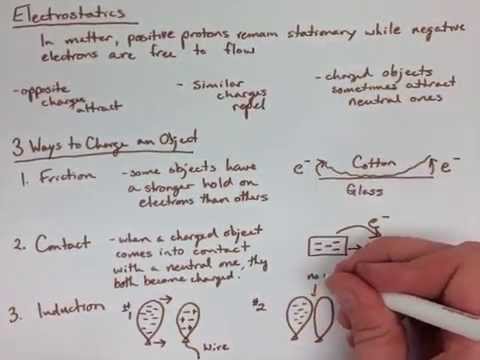 Electrostatics
In matter, positive protons remain stationary while negative
electrons are free to flow
- opposite
charges
attract
- Similar
charges
repel
- charged objects
sometimes attract
neutral ones
3 Ways to Charge an Object
1. Friction
- some objects have
a stronger hold on
electrons than others
e⁻ Cotton e⁻
Glass
2. Contact
- when a charged object
comes into contact
with a neutral one, they
both become charged.
e⁻
3. Induction
#1
Wire
#2
no